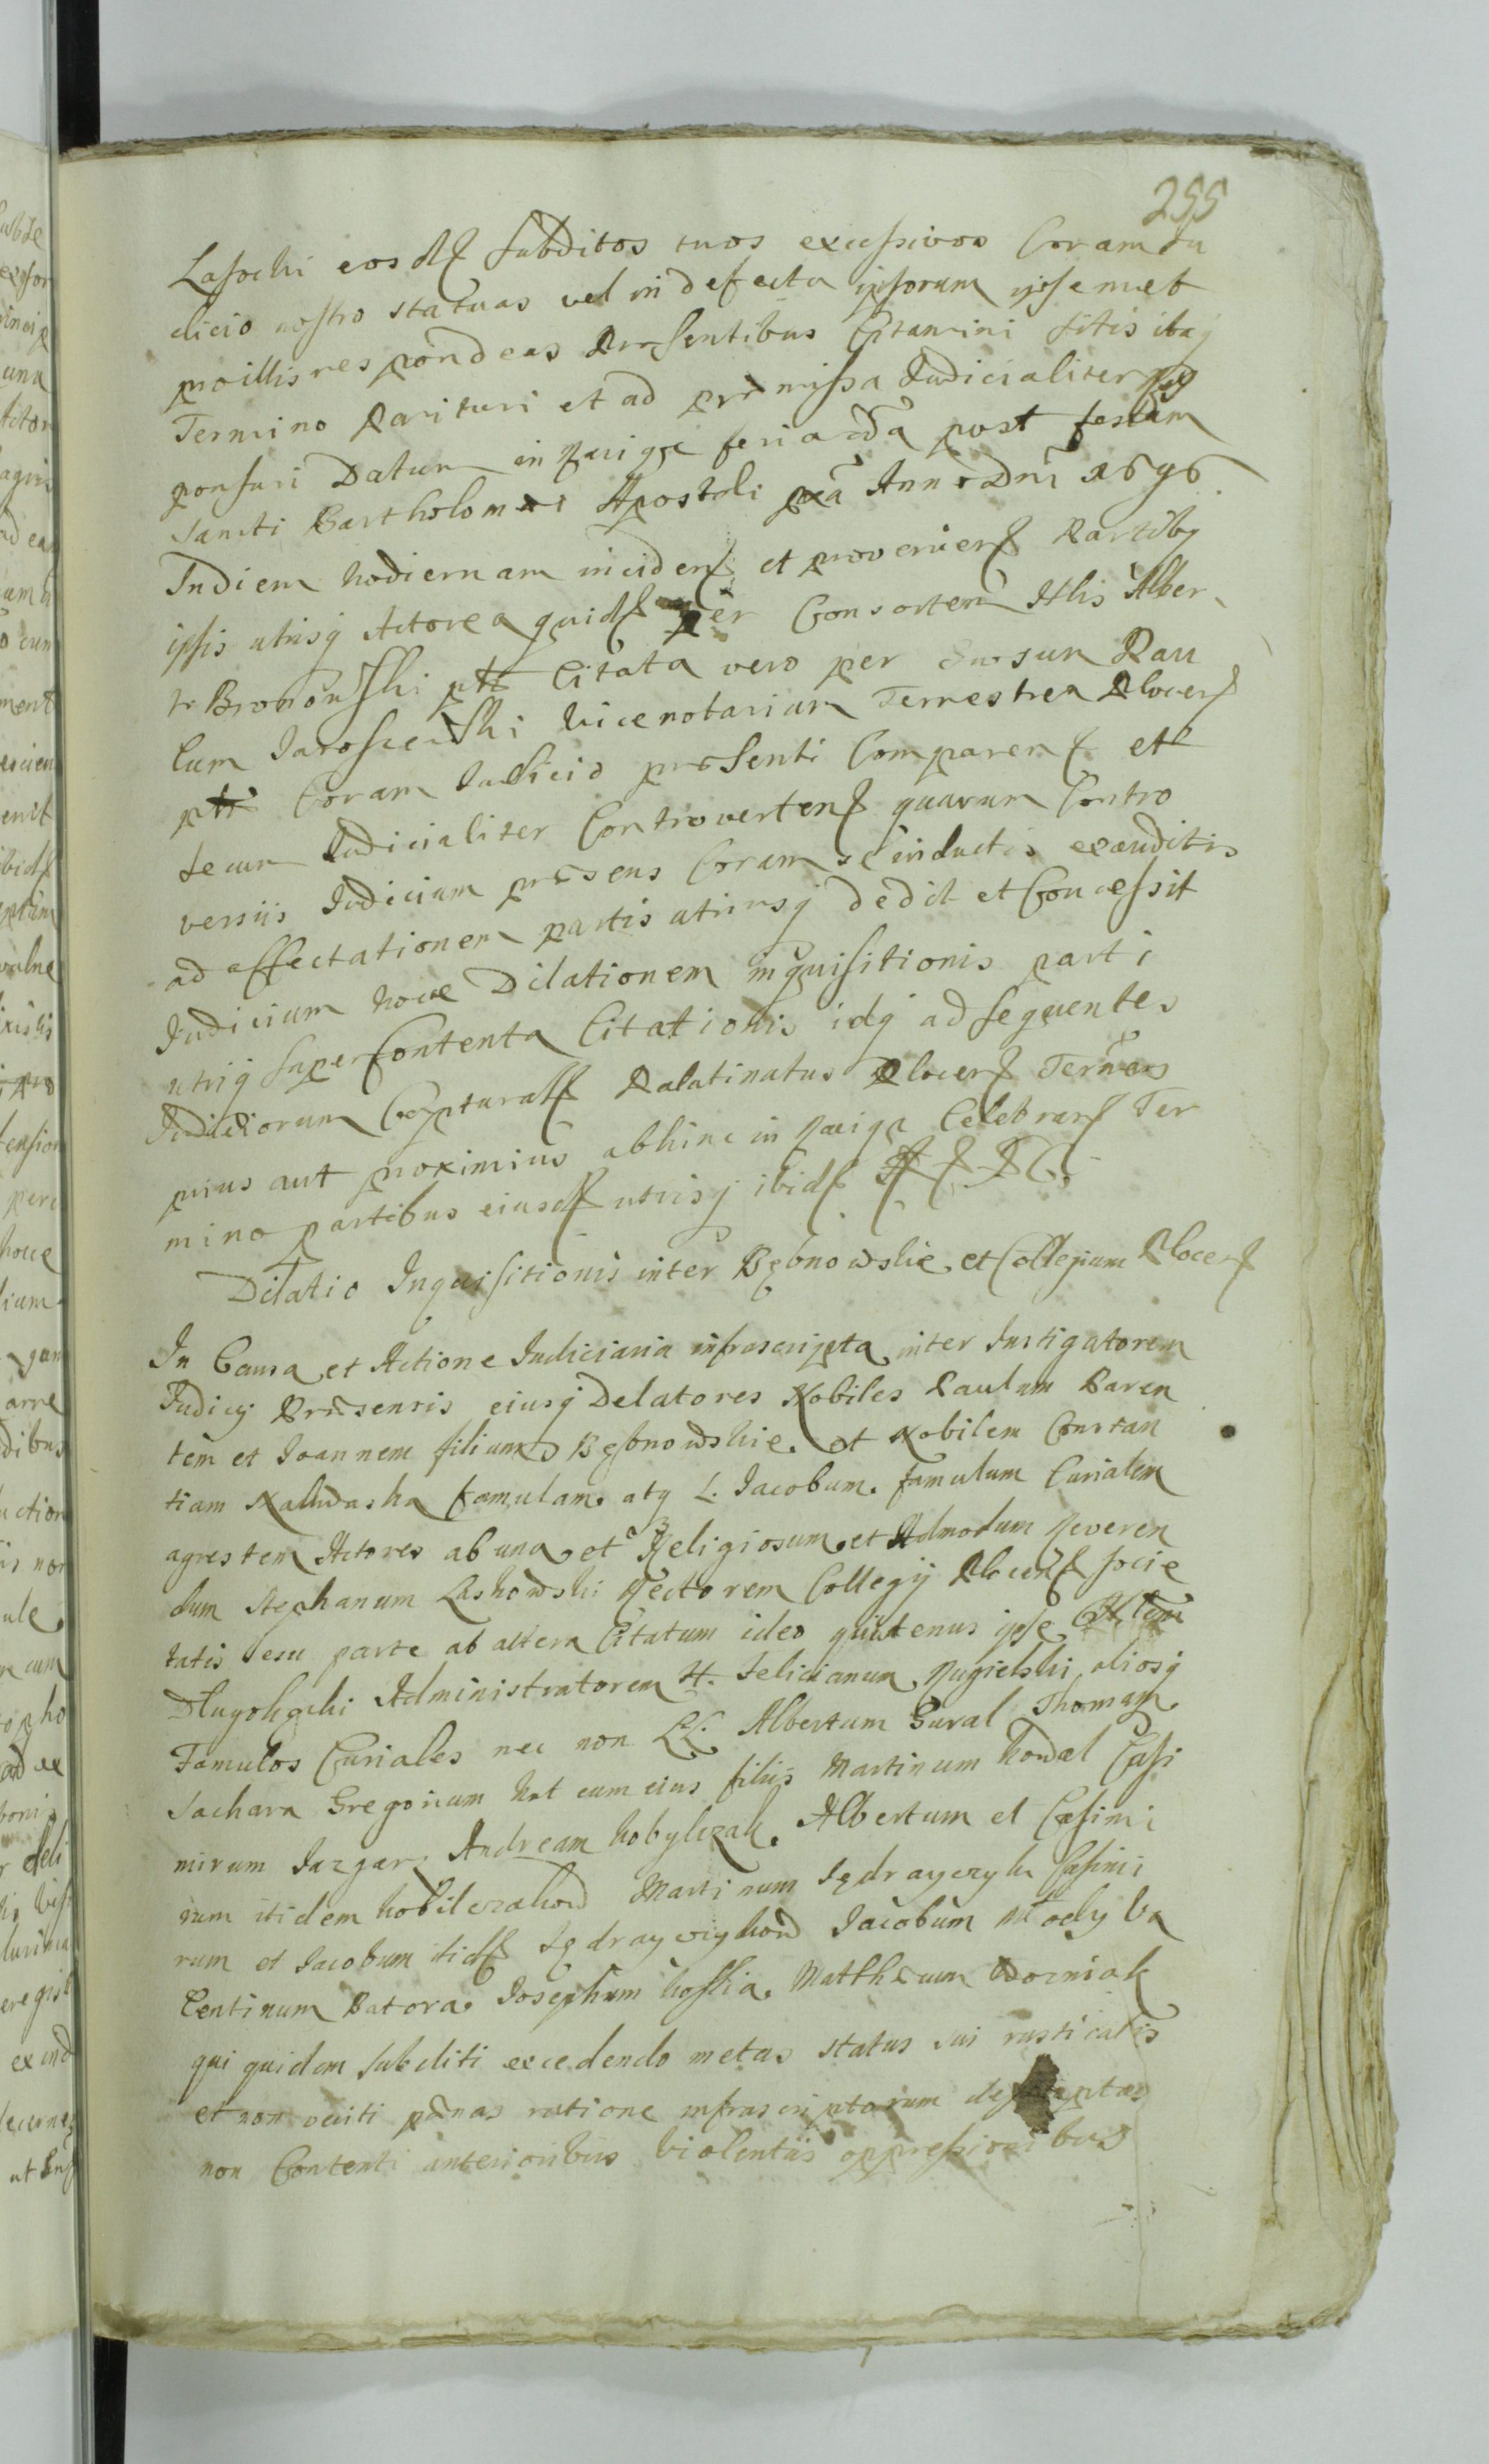 255
Lasochi eosdem subditos tuos excessivos Coram Ju
dicio nostro statuas vel in defectu ipsorum ipsemet
pro illis respondeas Prœsentibus Citamini sitis itaq
Termino Parituri et ad prœmissa Judicialiter res
ponsuri Datum in feria 2da post festum
Sancti Bartholomœi Apostoli pxa Anno Dni 1696
In diem hodiernam inciden et provenien Partibq
ipsis utrisq Actorea quid per Consortem Nlis Alber
ti Bromowski ptt Citata vero per Suosum Pau
lum Jaroszewski Vicenotarium Terrestrem Plocen
ptt Coram Judicio prœsenti Comparen et
secum Judicialiter Controverten quarum Contro
versiis Judicium prœsens Coram se inductis exauditis
ad affectationem partis utriusq dedit et Concessit
Judicium hocce Dilationem inquisitionis parti
utriq super Contenta Citationis idq ad sequentes
Judiciorum Captural Palatinatus Plocen Termnos
prius aut proximius abhinc in Celebran Ter
mino partibus eiusd utrisq ibid
Dilatio Inquisitionis inter Bębnowskie et Collegium Plocen
In Causa et Actione Judiciaria infrascripta inter Instigatorem
Judicy Prœsentis eiusq Delatores Nobiles Paulum Paren
tem et Joannem filium Bębnowskie et Nobilem Constan
tiam famulam atq L. Jacobum famulum Curialem
agrestem Actores ab una et Religiosum et Admodum Reveren
dum Stephanum Laskowski Rectorem Collegij Plocen Socie
tatis Jesu parte ab altera Citatum ideo quatenus ipse
Administratorem N. Felicianum Rugielski aliosq
Famulos Curiales nec non LL. Albertum Gural Thomam
Sachara Gregorium Kot cum eius filiis Martinum Kowal Casi
mirum Andream Kobylczak Albertum et Casimi
rum itidem Kobilczakow Martinum Casimi
rum et Jacobum itid Jacobum Va
lentinum Batora Josephum Matthœum Wozniak
qui quidem subditi excedendo metas status sui rusticalis
et non veriti pœnas ratione infrascriptorum
non Contenti anterioribus Violentiis oppressionibus